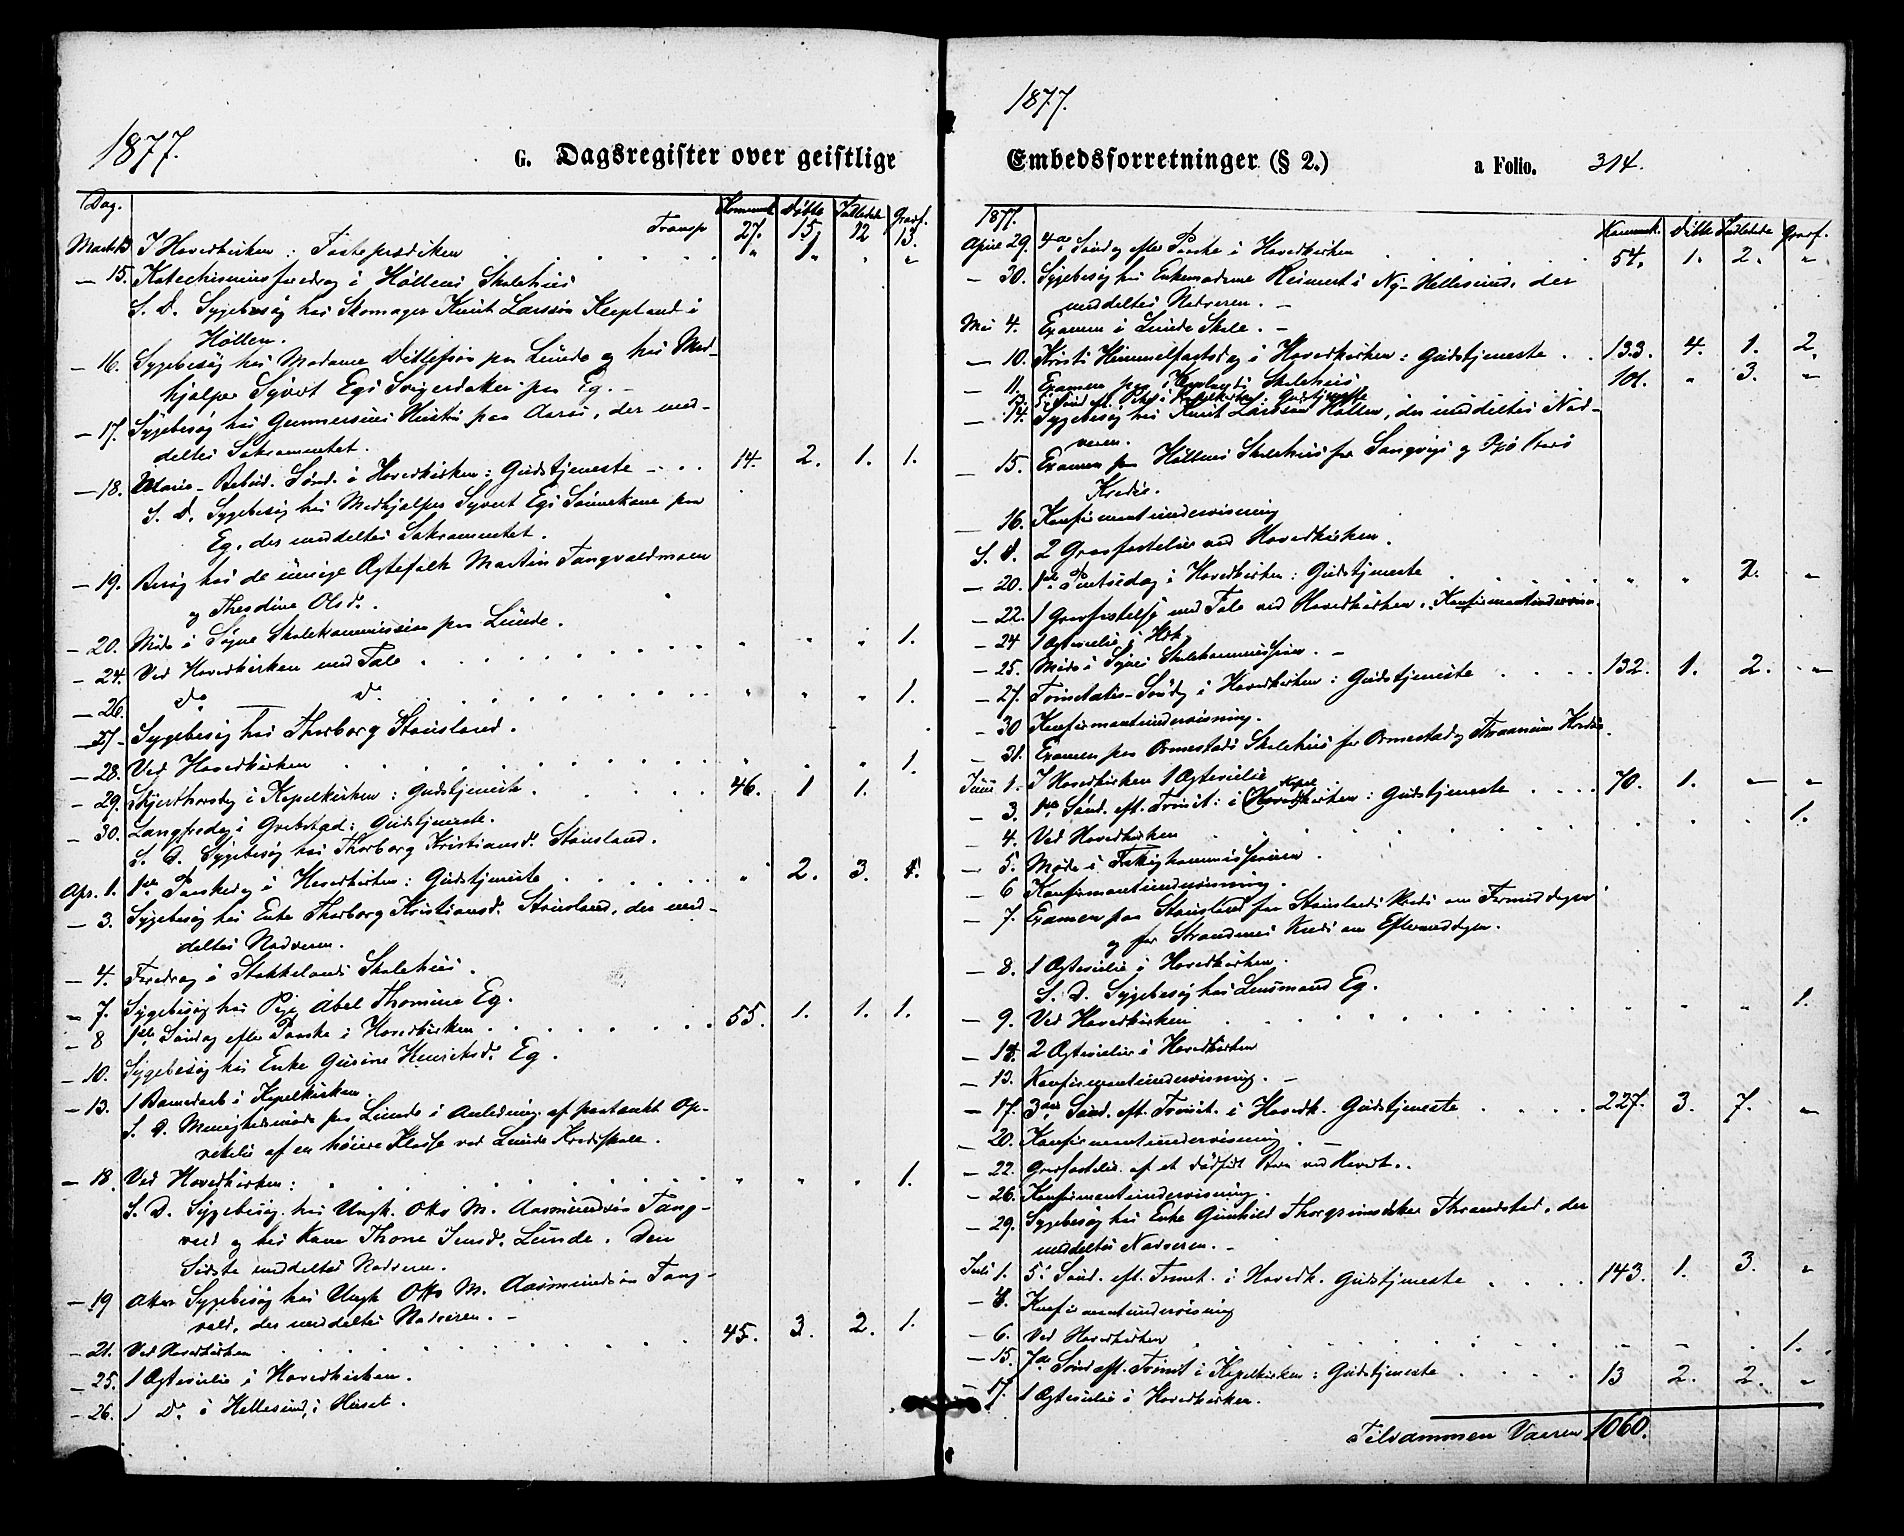 1877.
G. Dagsregister over geistlige
Dag. Kommunik. Döbte Indledede Gravf.
Transp 27. 15. 12 13.
Marts I Hovedkirken: Fasteprædiken . . . " 1. " "
— 15. Katechismusforedrag i Höllens Skolehus
S. D. Sygebesög hos Skomager Knut Larssön Kleptand i
Höllen.
— 16. Sygebesög hos Madame Ditlefsön paa Lunde og hos Med-
hjælper Syvert Egs Svigerdatter paa Eg. —
— 17. Sygebesög hos Gunnersens Hustru paa Aarös, der med-
deltes Sakramentet.
— 18. Marie-Bebud. Sönd. i Hovedkirken: Gudstjeneste — . . 14. 2. 1. 1.
S. D. Sygebesög hos Medhjælper Syvert Egs Sönnekone paa
Eg, der meddeltes Sakramentet.
— 19. Besög hos de uenige Ægtefolk Martin Tangvaldmoen
og Thesdine Olsd.
— 20. Möde i Sögne Skolekommission paa Lunde.
— 24. Ved Hovedkirken med Tale . . . " " " 1.
— 26. do — do . . . " " " 1.
— 27. Sygebesög hos Thorborg Stausland.
— 28. Ved Hovedkirken . . . " " " 1.
— 29. Skjærthorsdag i Kapelkirken: Gudstjeneste. . . 46. 1 1.
— 30. Langfredag i Grebstad: Gudstjeneste.
S. D. Sygebesög hos Thorborg Kristiansd. Stausland.
Apr. 1. 1ste Paaskedag i Hovedkirken: Gudstjeneste . . . " 2. 3. 1.
— 3. Sygebesög hos Enke Thorborg Kristiansd. Stausland, der med-
deltes Nadveren.
— 4. Foredrag i Stokkelands Skolehus.
— 7. Sygebesög hos Pige Abel Thomine Eg.
— 8 1ste Söndag efter Paaske i Hovedkirken . . . 55. 1. 1. 1.
— 10. Sygebesög hos Enke Gusine Henriksd. Eg.
— 13. 1 Barnedaab i Kapelkirken.
S. D. Menighedsmöde paa Lunde i Anledning af paatænkt Op-
rettelse af en höiere Klasse ved Lunde Kredsskole.
— 18. Ved Hovedkirken: . . . " " " 1.
S. D. Sygebesög hos Ungk. Otto M. Aasmundsön Tang-
vald og hos Kone Thone Jensd. Lunde. Den
Sidste meddeltes Nadveren.
— 19 Atter Sygebesög hos Ungk Otto M. Aasmundsön Tang-
vald, der meddeltes Nadveren. — 45. 3. 2. 1.
— 21. Ved Hovedkirken . . .
— 25. 1 Ægtevielse i Hovedkirken.
— 26. 1 Do i Hellesund, i Huset.
1877.
Embedsforretninger (§ 2.) a Folio. 314.
1877. Kommunik. Döbte Indledede Gravf.
April 29. 4de Sönd. efter Paaske i Hovedkirken . . . 54. 1. 2. "
— 30. Sygebesög hos Enkemadame Reimert i Ny-Hellesund, der
meddeltes Nadveren. —
Mai 4. Examen i Lunde Skole. —
— 10. Kristi Himmelfartsdag i Hovedkirken: Gudstjeneste . . 133. 4. 1. 2.
— 11. Examen paa Skolehus 101. " 3. "
— 13. Gudstjeneste
— 14. Sygebesög hos Knut Larssen Höllen, der meddeltes Nad-
veren.
— 15. Examen paa Höllens Skolehus for Langvigs og
Kreds.
— 16. Konfirmantundervisning
S. D. 2 Gravfæstelser ved Hovedkirken.
— 20. 1ste Pintsedag i Hovedkirken: Gudstjeneste . . . " " 2. "
— 22. 1 Gravfæstelse med Tale ved Hovedkirken. Konfirmantundervisn.
— 24 1 Ægtevielse i Hdk.
— 25. Möde i Sögne Skolekommission. —
— 27. Trinitatis-Sönd. i Hovedkirken: Gudstjeneste . . . 132. 1. 2. "
— 30 Konfirmantundervisning.
— 31. Examen paa Ormestads Skolehus for Ormestad og Kreds.
Juni 1. I Hovedkirken 1 Ægtevielse
Kapel
— 3. 1ste Sönd. eft. Trinit: i Hovedkirken: Gudstjeneste . . . 70. 1. — "
— 4. Ved Hovedkirken . . . 1.
— 5. Möde i Fattigkommissionen.
— 6 Konfirmantundervisning.
— 7. Examen paa Stausland for Stauslands Kreds om Formiddagen
og for Strandenes Kreds om Eftermiddagen.
— 8. 1 Ægtevielse i Hovedkirken.
S. D. Sygebesög hos Lensmand Eg.
— 9. Ved Hovedkirken . . . " " " 1.
2 Ægtevielser i Hovedkirken
— 13. Konfirmantundervisning. —
— 17. 3die Sönd. eft. Trinit. i Hovedk. Gudstjeneste . . . 227. 3. 7. "
— 20. Konfirmantundervisning. —
— 22. Gravfæstelse af et dödfödt Barn ved Hovedk.
— 26. Konfirmantundervisning.
— 29. Sygebesög hos Enke Gunhild Thorgrimsdatter Thrandstad, der
meddeltes Nadveren. —
Juli 1. 5. Sönd. eft. Trinit. i Hovedk. Gudstjeneste . . . 143. 1. 3. "
— 4. Konfirmantundervisning
— 6. Ved Hovedkirken . . . — — " 1.
— 15. 7de Sönd eft. Trinit i Kapelkirken: Gudstjeneste . . . 13 2. 2. "
— 17. 1 Ægtevielse i Hovedkirken.
Tilsammen Vaaren 1060.